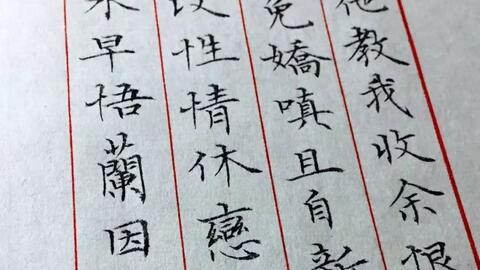 他教我收余恨
免嬌嗔且自新
改性情休戀
早悟蘭因